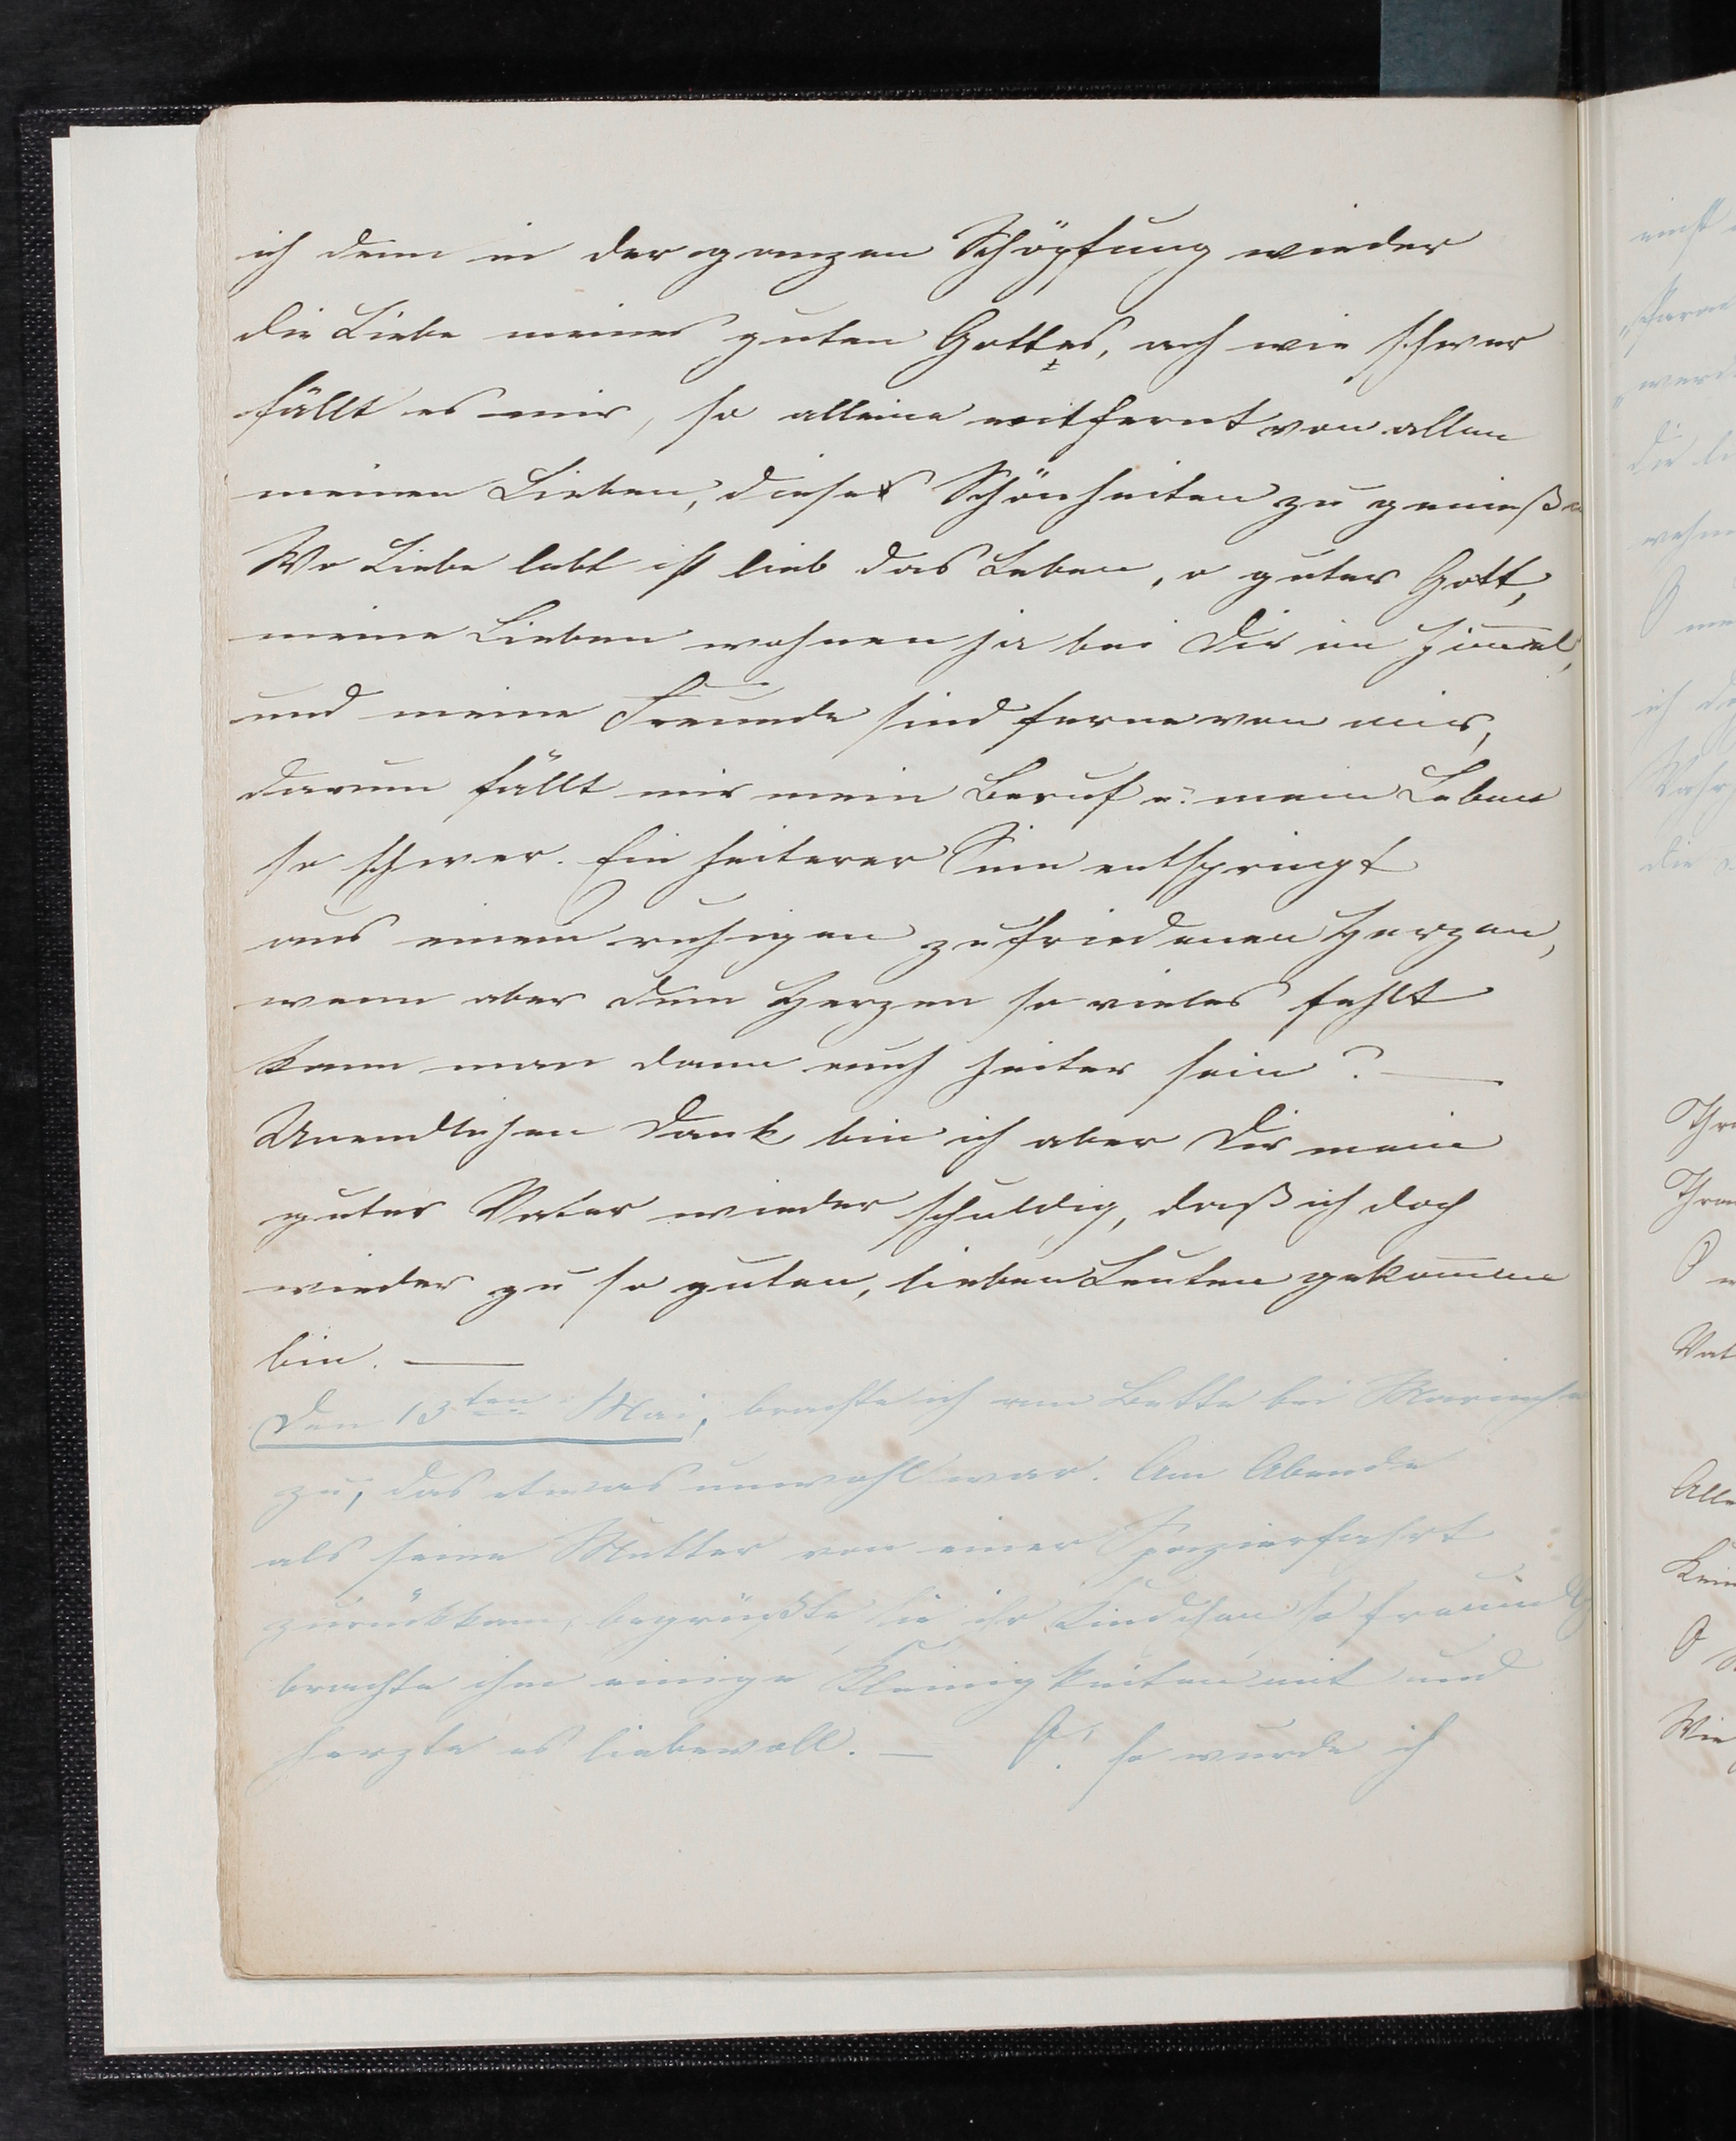 ich denn in der ganzen Schöpfung wieder
die Liebe meines guten Gottes, ach wie schwer
fällt es mir, so alleine entfernt von allen
meinen Lieben, dieses Schönheiten zu genieße
Wo Liebe lebt ist lieb das Leben, o guter Gott,
meine Lieben wohnen ja bei Dir im Himmel,
und meine Freunde sind ferne von mir,
darum fällt mir mein Beruf u. mein Leben
so schwer. Ein heiterer Sinn entspringt
aus einem ruhigen zufriedenen Herzen,
wenn aber dem Herzen so vieles fehlt
kann man dann auch heiter sein? —
Unendlichen Dank bin ich aber Dir mein
guter Vater wieder schuldig, daß ich doch
wieder zu so guten, lieben Leuten gekom̅en
bin. —
Den 13ten Mai, brachte ich am Bette bei
zu, das etwas unwohl war. Am Abende
als seine Mutter von einer Spazierfahrt
zurükkam, begrüßte sie ihr Kindchen so freundl
brachte ihm einige Kleinigkeiten mit und
herzte es liebevoll. — O! so wurde ich
einst
die
O
ich
die
O
Vat
Alle
O
Wie